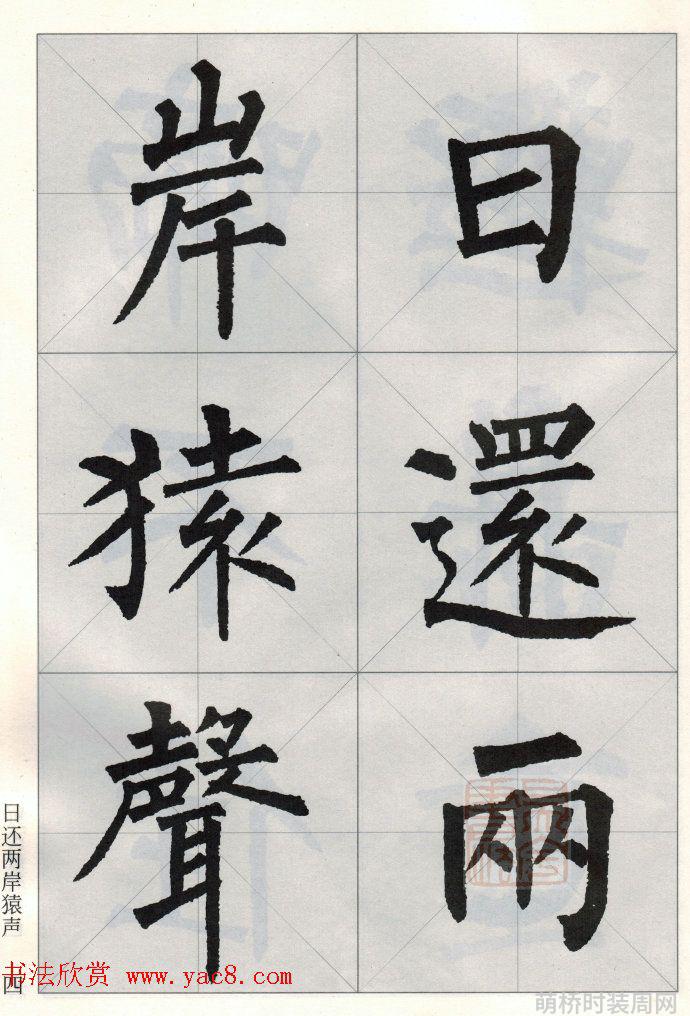 日還兩
岸猿聲
日还两岸猿声
四
书法欣赏 www.yac8.com
萌桥时装周网